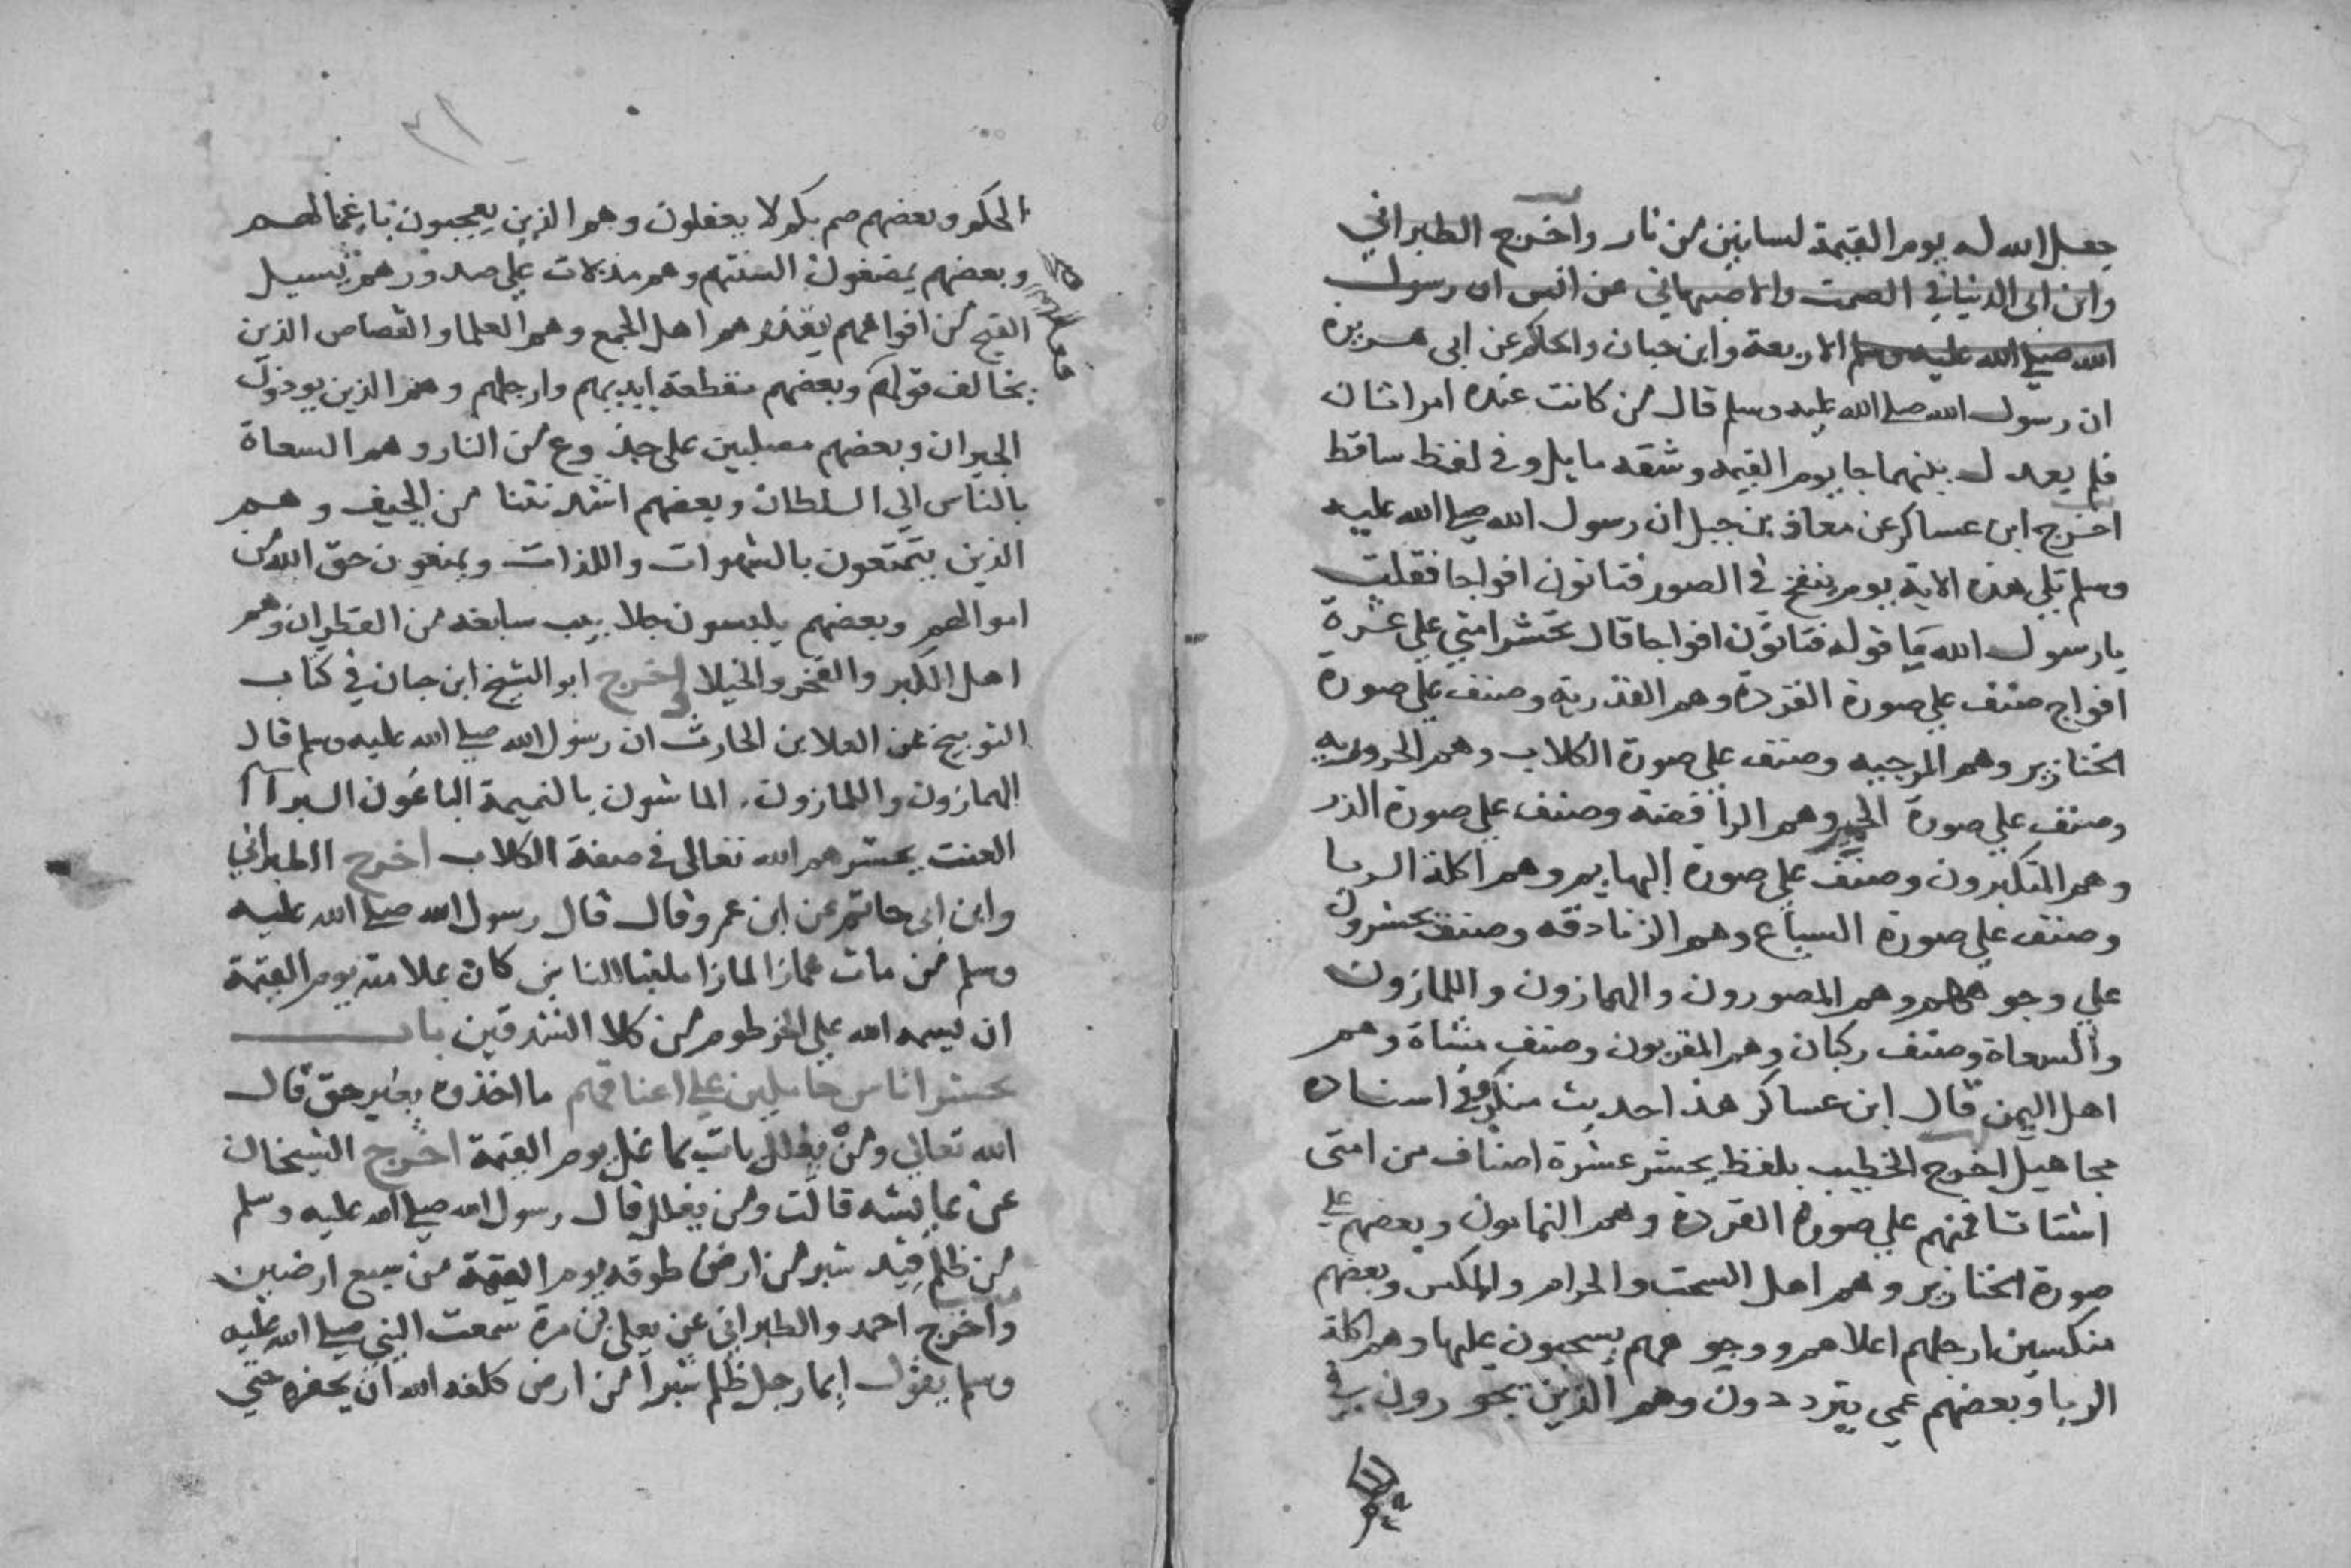 جعل الله له يوم القيمة لسانين من نار واخرج الطبراني
وابن ابى الدنيا في الصمت والاصبهاني عن انس ان رسول
الله صلي الله عليه وسلم الاربعة وابن حبان والحاكم عن ابى هريرة
ان رسول الله صلي الله عليه وسلم قال من كانت عنده امراتان
فلم يعدل بينهما جا يوم القيمه وشقه مايل وفي لفظ ساقط
اخرج ابن عساكر عن معاذ بن جبل ان رسول الله صلي الله عليه
وسلم تلي هذه الاية يوم ينفخ في الصور فتاتون افواجا فقلت
يا رسول الله ما قوله فتاتون افواجا قال تحشر امتي علي عشرة
افواج صنف علي صورة القردة وهم القدرية وصنف علي صورة
الخنازير وهم المرجيه وصنف علي صورة الكلاب وهم الحروريه
وصنف علي صورة الحمير وهم الرافضة وصنف علي صورة الذر
وهم المتكبرون وصنف علي صورة البهايم وهم اكلة الربا
وصنف علي صورة السباع وهم الزنادقه وصنف يحشرون
علي وجوههم وهم المصورون والهمازون واللمازون
والسعاة وصنف ركبان وهم المقربون وصنف مشاة وهم
اهل اليمن قال ابن عساكر هذا حديث منكر وفي اسناده
مجاهيل اخرج الخطيب بلفظ يحشر عشرة اصناف من امتى
اشتاتا فمنهم علي صورة القردة وهم النمامون وبعضهم علي
صورة الخنازير وهم اهل السحت والحرام والمكس وبعضهم
منكسين ارجلهم اعلاهم ووجوههم يسحبون عليها وهم اكلة
الربا وبعضهم عمي يترددون وهم الذين يجورون في
الحكم وبعضهم صم بكم لا يعقلون وهم الذين يعجبون باعمالهم
وبعضهم يمضغون السنتهم وهم مذلات علي صدورهم يسيل
القيح من افواههم يقذرهم اهل الجمع وهم العلما والقصاص الذين
يخالف قولهم وبعضهم مقطعة ايديهم وارجلهم وهم الذين يوذون
الجيران وبعضهم مصلبين على جذوع من النار وهم السعاة
بالناس الي السلطان وبعضهم اشد نتنا من الجيف وهم
الذين يتمتعون بالشهوات واللذات ويمنعون حق الله من
اموالهم وبعضهم يلبسون جلابيب سابغه من القطران وهم
اهل الكبر والفخر والخيلا اخرج ابو الشيخ ابن حبان في كتاب
التوبيخ عن العلا بن الحارث ان رسول الله صلي الله عليه وسلم قال
الهمازون واللمازون الماشون بالنميمة الباغون البرآا
العنت يحشرهم الله تعالى في صفة الكلاب اخرج الطبراني
وابن ابى حاتم عن ابن عمرو قال قال رسول الله صلي الله عليه
وسلم من مات همازا لمازا ملقبا للناس كان علامته يوم القيمة
ان يسمه الله علي الخرطوم من كلا الشدقين باب
يحشر اناس حاملين علي اعناقهم ما اخذوه بغير حق قال
الله تعالي ومن يغلل يات بما غل يوم القيمة اخرج الشيخان
عن عايشه قالت ومن يغلل قال رسول الله صلي الله عليه وسلم
من ظلم قيد شبر من ارض طوقه يوم القيمة من سبع ارضين
واخرج احمد والطبراني عن يعلي بن مرة سمعت النبي صلي الله عليه
وسلم يقول ايما رجل ظلم شبرا من ارض كلفه الله ان يحفره حتي